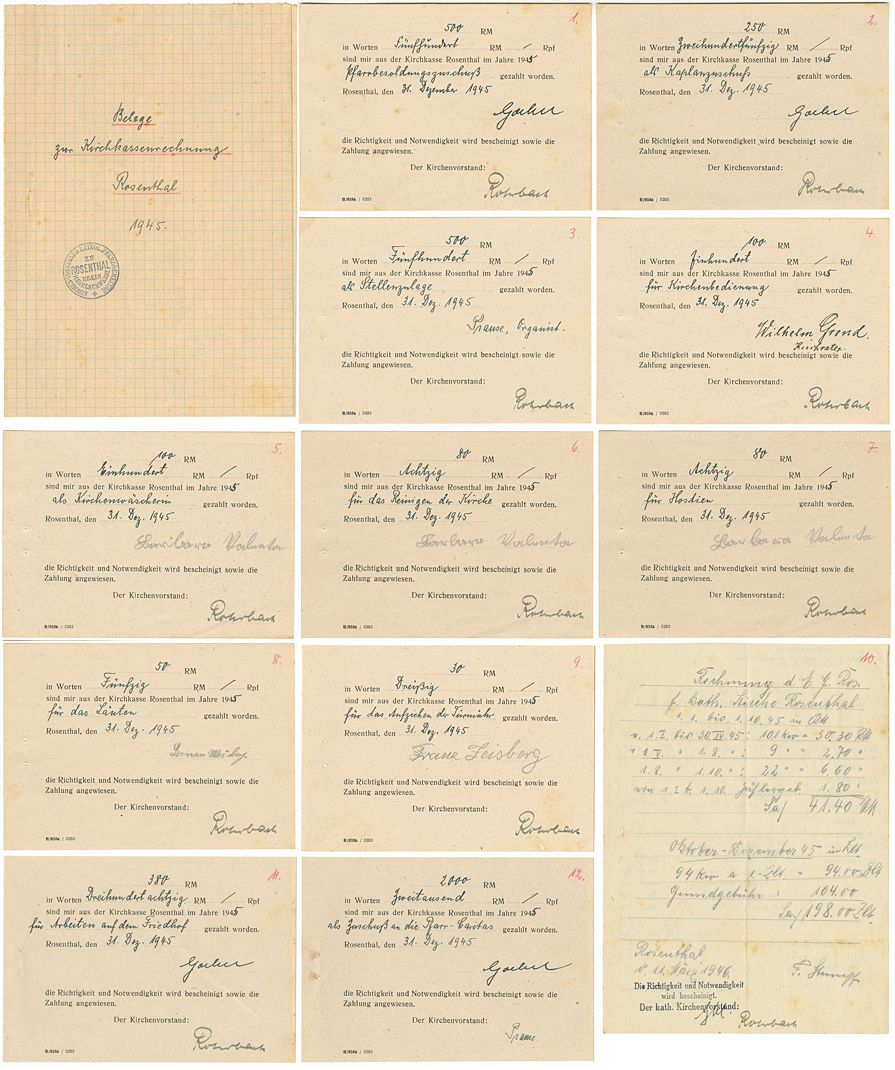 Belege
zur Kirchkassenrechnung
Rosenthal
1945.
ZU
ROSENTHAL
KREIS
HABELSCHWERDT
1.
500 RM
in Worten Fünfhundert RM / Rpf
sind mir aus der Kirchkasse Rosenthal im Jahre 1945
Pfarrbesoldungszuschuß gezahlt worden.
Rosenthal, den 31. Dezember 1945
Goebel
die Richtigkeit und Notwendigkeit wird bescheinigt sowie die
Zahlung angewiesen.
Der Kirchenvorstand:
Rohrbach
2.
250 RM
in Worten Zweihundertfünfzig RM / Rpf
sind mir aus der Kirchkasse Rosenthal im Jahre 1945
als Kaplanzuschuß gezahlt worden.
Rosenthal, den 31. Dez. 1945
Goebel
die Richtigkeit und Notwendigkeit wird bescheinigt sowie die
Zahlung angewiesen.
Der Kirchenvorstand:
Rohrbach
3.
500 RM
in Worten Fünfhundert RM / Rpf
sind mir aus der Kirchkasse Rosenthal im Jahre 1945
als Stellenzulage gezahlt worden.
Rosenthal, den 31. Dez. 1945
Prause, Organist.
die Richtigkeit und Notwendigkeit wird bescheinigt sowie die
Zahlung angewiesen.
Der Kirchenvorstand:
Rohrbach
4.
100 RM
in Worten Einhundert RM / Rpf
sind mir aus der Kirchkasse Rosenthal im Jahre 1945
für Kirchenbedienung gezahlt worden.
Rosenthal, den 31. Dez. 1945
Wilhelm Grond.
die Richtigkeit und Notwendigkeit wird bescheinigt sowie die
Zahlung angewiesen.
Der Kirchenvorstand:
Rohrbach
5.
100 RM
in Worten Einhundert RM / Rpf
sind mir aus der Kirchkasse Rosenthal im Jahre 1945
als Kirchenwäscherin gezahlt worden.
Rosenthal, den 31. Dez. 1945
Barbara Valenta
die Richtigkeit und Notwendigkeit wird bescheinigt sowie die
Zahlung angewiesen.
Der Kirchenvorstand:
Rohrbach
6.
80 RM
in Worten Achtzig RM / Rpf
sind mir aus der Kirchkasse Rosenthal im Jahre 1945
für das Reinigen der Kirche gezahlt worden.
Rosenthal, den 31. Dez. 1945
Barbara Valenta
die Richtigkeit und Notwendigkeit wird bescheinigt sowie die
Zahlung angewiesen.
Der Kirchenvorstand:
Rohrbach
7.
80 RM
in Worten Achtzig RM / Rpf
sind mir aus der Kirchkasse Rosenthal im Jahre 1945
für Hostien gezahlt worden.
Rosenthal, den 31. Dez. 1945
Barbara Valenta
die Richtigkeit und Notwendigkeit wird bescheinigt sowie die
Zahlung angewiesen.
Der Kirchenvorstand:
Rohrbach
8.
50 RM
in Worten Fünfzig RM / Rpf
sind mir aus der Kirchkasse Rosenthal im Jahre 1945
für das Läuten gezahlt worden.
Rosenthal, den 31. Dez. 1945
die Richtigkeit und Notwendigkeit wird bescheinigt sowie die
Zahlung angewiesen.
Der Kirchenvorstand:
Rohrbach
9.
30 RM
in Worten Dreißig RM / Rpf
sind mir aus der Kirchkasse Rosenthal im Jahre 1945
für das Aufziehen der Turmuhr gezahlt worden.
Rosenthal, den 31. Dez. 1945
Franz Zeisberg
die Richtigkeit und Notwendigkeit wird bescheinigt sowie die
Zahlung angewiesen.
Der Kirchenvorstand:
Rohrbach
10.
Rechnung d. E. G. Ros.
f. kath. Kirche Rosenthal
v. 1.1. bis 1.10.45 in RM
v. 1.I. bis 30.IV.45: 101 kw = 30,30 RM
1.8. 9 " = 2.70 "
1.8. " 1.10. ": 22 " = 6,60 "
von 1.I. b. 1.10. Zählergeb. 1.80 "
Sa/ 41.40 RM
Oktober-Dezember 45 in Zlt.
94 kw a 1.- Zlt. = 94.00 Zlt
Grundgebühr: 104.00
Sa/ 198.00 Zlt.
Rosenthal
d. 11. März 1946. F. Stumpf
Die Richtigkeit und Notwendigkeit
wird bescheinigt.
Der kath. Kirchenvorstand:
Rohrbach
11.
380 RM
in Worten Dreihundertachtzig RM / Rpf
sind mir aus der Kirchkasse Rosenthal im Jahre 1945
für Arbeiten auf dem Friedhof gezahlt worden.
Rosenthal, den 31. Dez. 1945
Goebel
die Richtigkeit und Notwendigkeit wird bescheinigt sowie die
Zahlung angewiesen.
Der Kirchenvorstand:
Rohrbach
12.
2000 RM
in Worten Zweitausend RM / Rpf
sind mir aus der Kirchkasse Rosenthal im Jahre 1945
als Zuschuß an die Pfarr-Caritas gezahlt worden.
Rosenthal, den 31. Dez. 1945
Goebel
die Richtigkeit und Notwendigkeit wird bescheinigt sowie die
Zahlung angewiesen.
Der Kirchenvorstand:
Prause